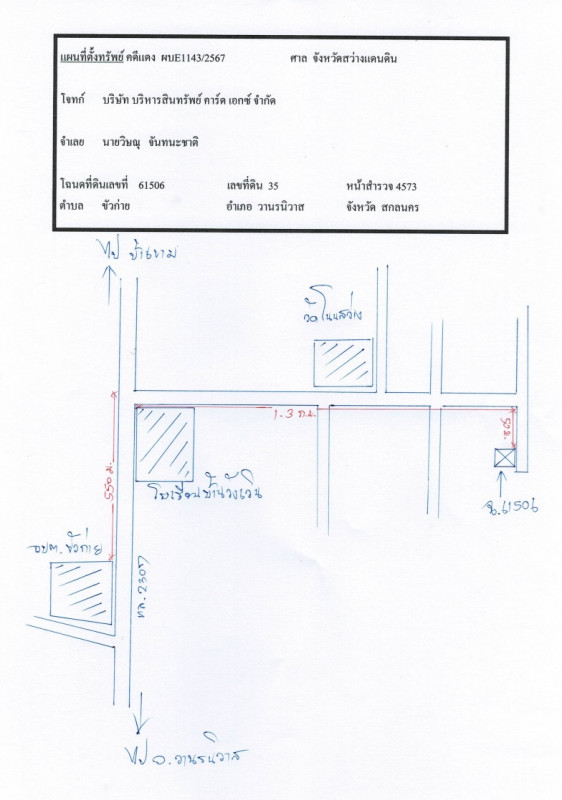 แผนที่ตั้งทรัพย์ คดีแดง ผบE1143/2567 ศาล จังหวัดสว่างแดนดิน
โจทก์ บริษัท บริหารสินทรัพย์ คาร์ด เอกซ์ จำกัด
จำเลย นายวิษณุ จันทนะชาติ
โฉนดที่ดินเลขที่ 61506 เลขที่ดิน 35 หน้าสำรวจ 4573
ตำบล ขัวก่าย อำเภอ วานรนิวาส จังหวัด สกลนคร
ไป บ้านขาม
วัดโนนสว่าง
1.3 ก.ม.
50 ม.
550 ม.
โรงเรียนบ้านวังเวิน
ฉ.61506
อบต.ขัวก่าย
ทล.2307
ไป อ.วานรนิวาส